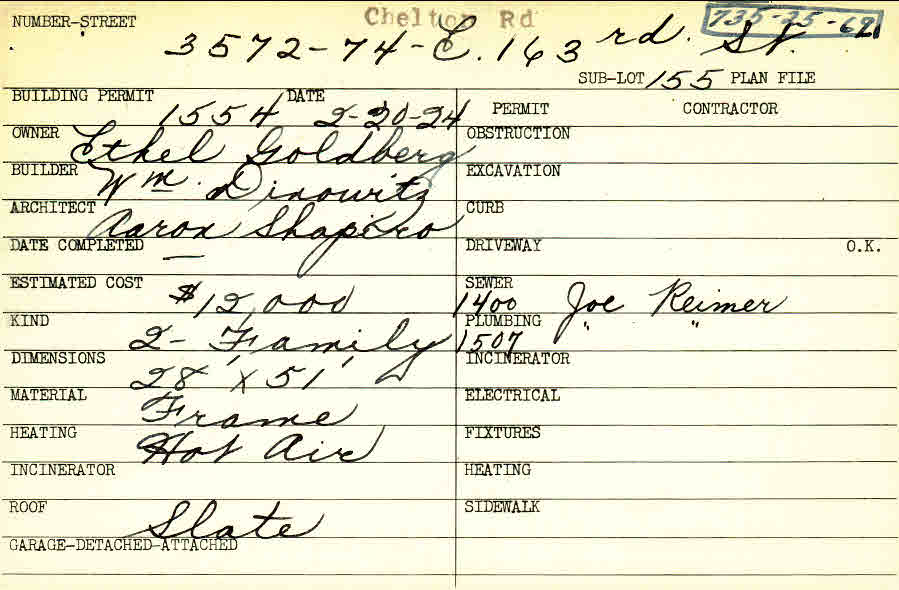 Chelton Rd
735-25-62
NUMBER-STREET 3572-74-E. 163rd. St.
SUB-LOT 155 PLAN FILE
BUILDING PERMIT 1554 DATE 2-20-24
PERMIT CONTRACTOR
OWNER Ethel Goldberg
OBSTRUCTION
BUILDER Wm. Dinowitz
EXCAVATION
ARCHITECT Aaron Shapiro
CURB
DATE COMPLETED —
DRIVEWAY O.K.
ESTIMATED COST $12,000
SEWER 1400 Joe Reimer
KIND 2-Family
PLUMBING 1507 " "
DIMENSIONS 28' x 51'
INCINERATOR
MATERIAL Frame
ELECTRICAL
HEATING Hot Air
FIXTURES
INCINERATOR
HEATING
ROOF Slate
SIDEWALK
GARAGE-DETACHED-ATTACHED